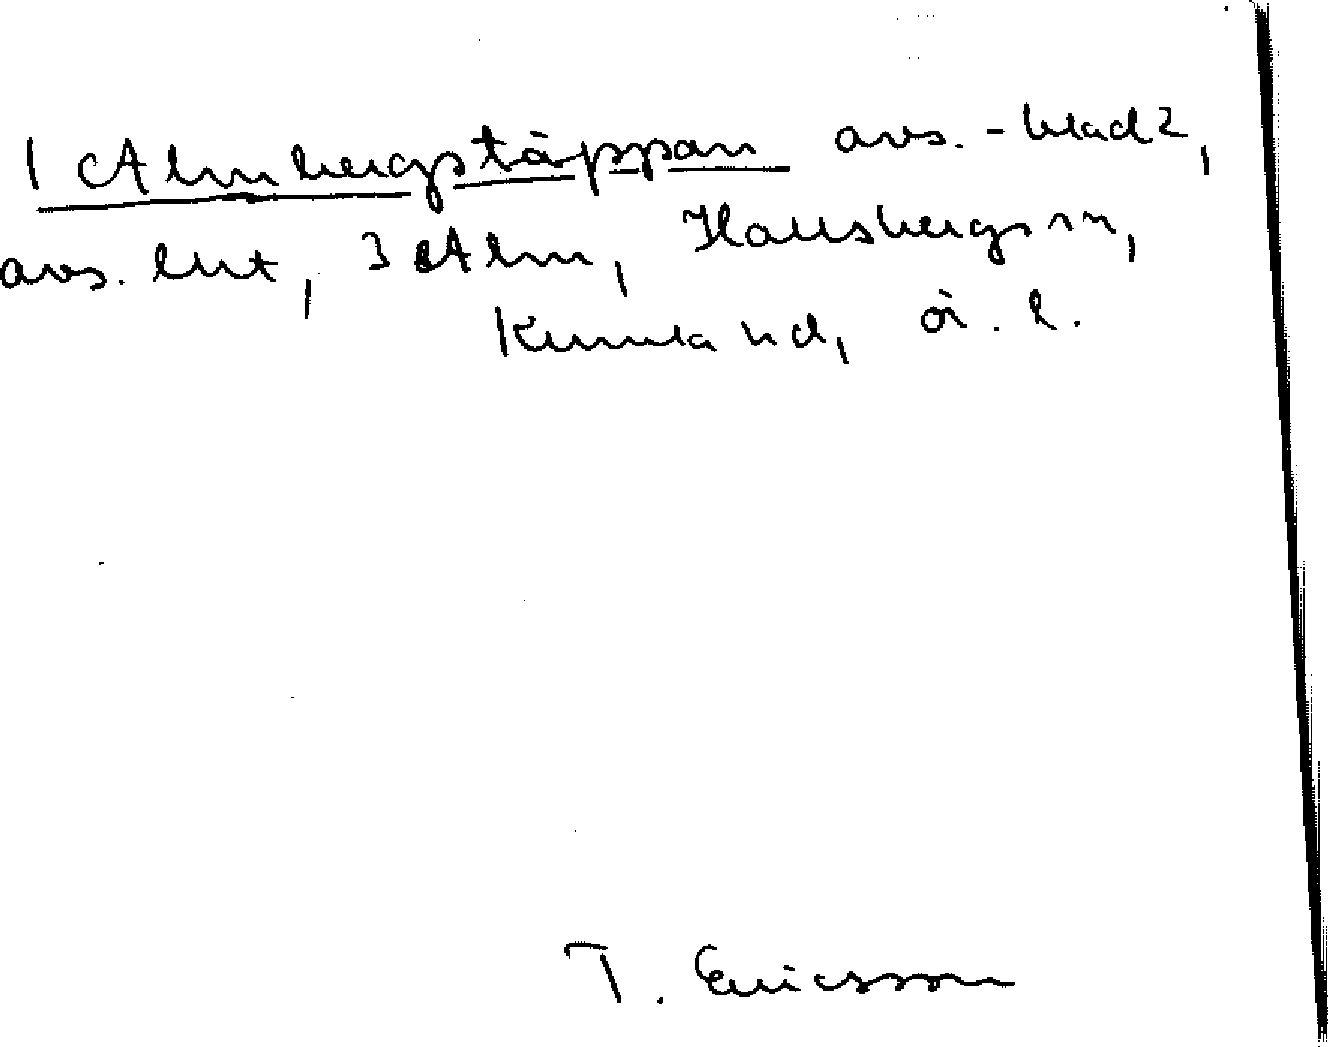 1 Almbergstäppan avs. - blad 2,
avs. lht, 3 Alm, Hallsbergs sn,
Kumla hd, ö. l.
T. Ericsson